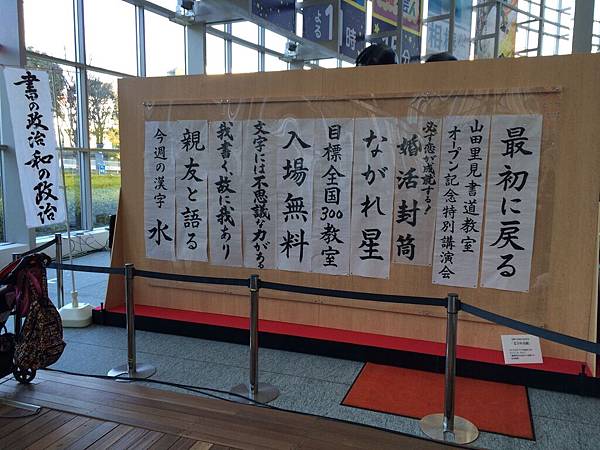 最初に戻る
山田里見書道教室
オープン記念特別講演会
必ず恋が成就する!
婚活封筒
ながれ星
目標全国300教室
入場無料
文字には不思議な力がある
我書く、故に我あり
親友と語る
今週の漢字 水
書の政治 和の政治
よる1時